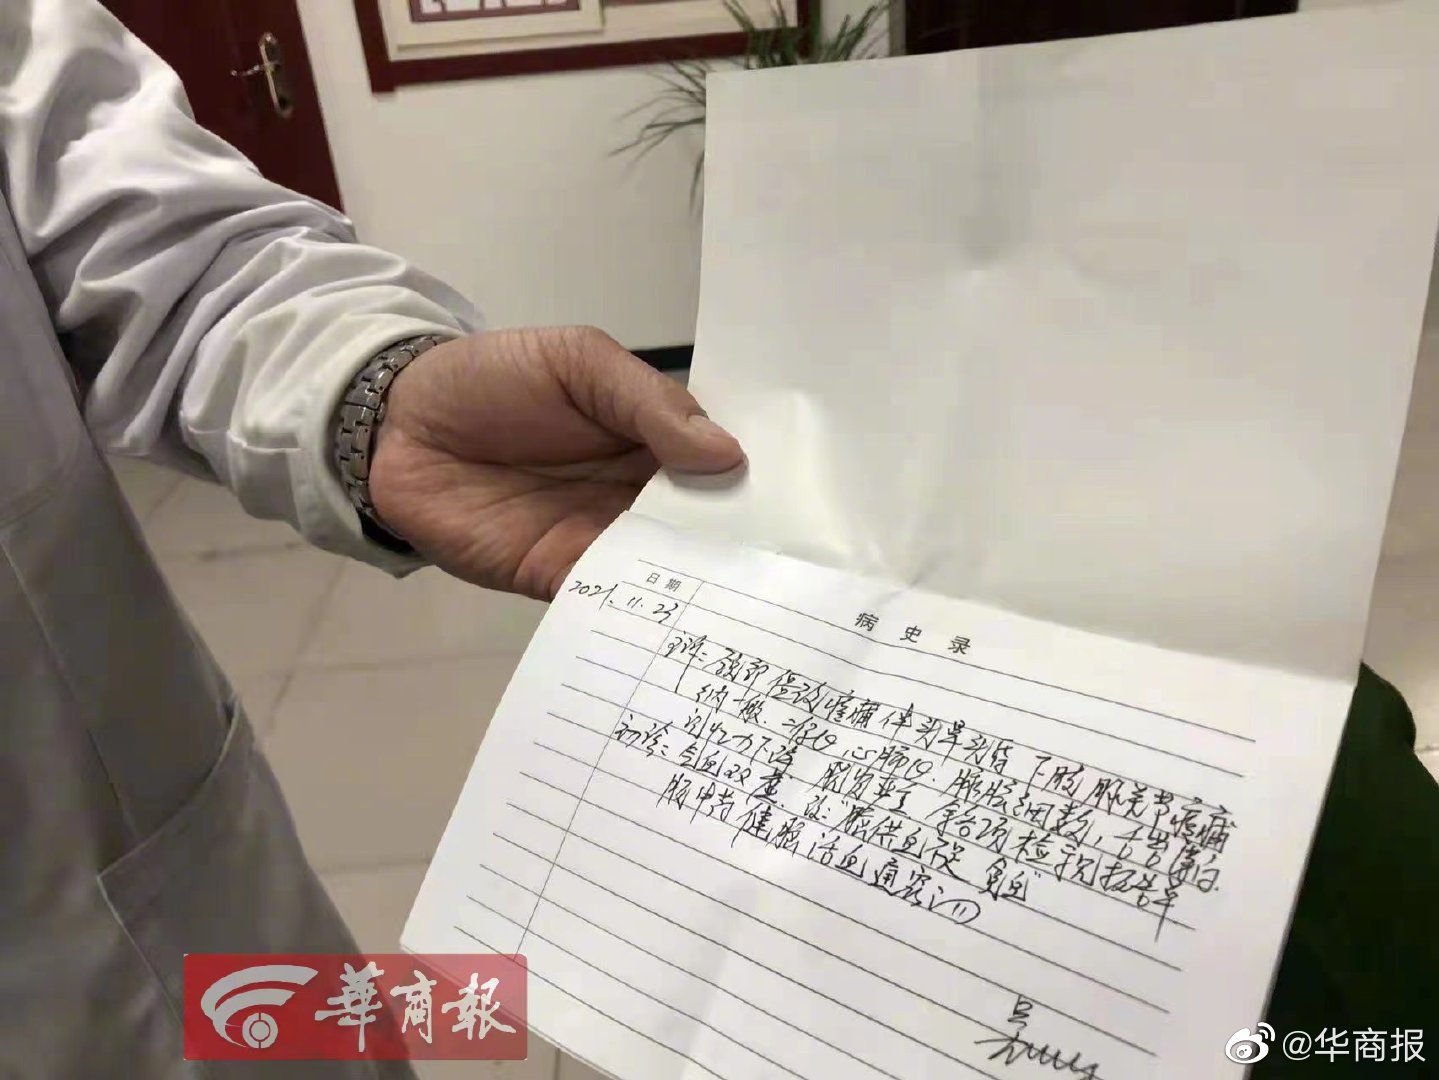 日期
病史录
2021.11.23
主诉: 颈部僵没疼痛伴头晕头昏 下肢膝关节疼痛
纳一般、二便 心肺 脉弦细数, 舌苔薄白
记忆力下降 脱发 余各项检视报告单
初诊: 气血双虚. 改:"脑供血不足 贫血"
服中药健脑活血通窍
華商報
@华商报